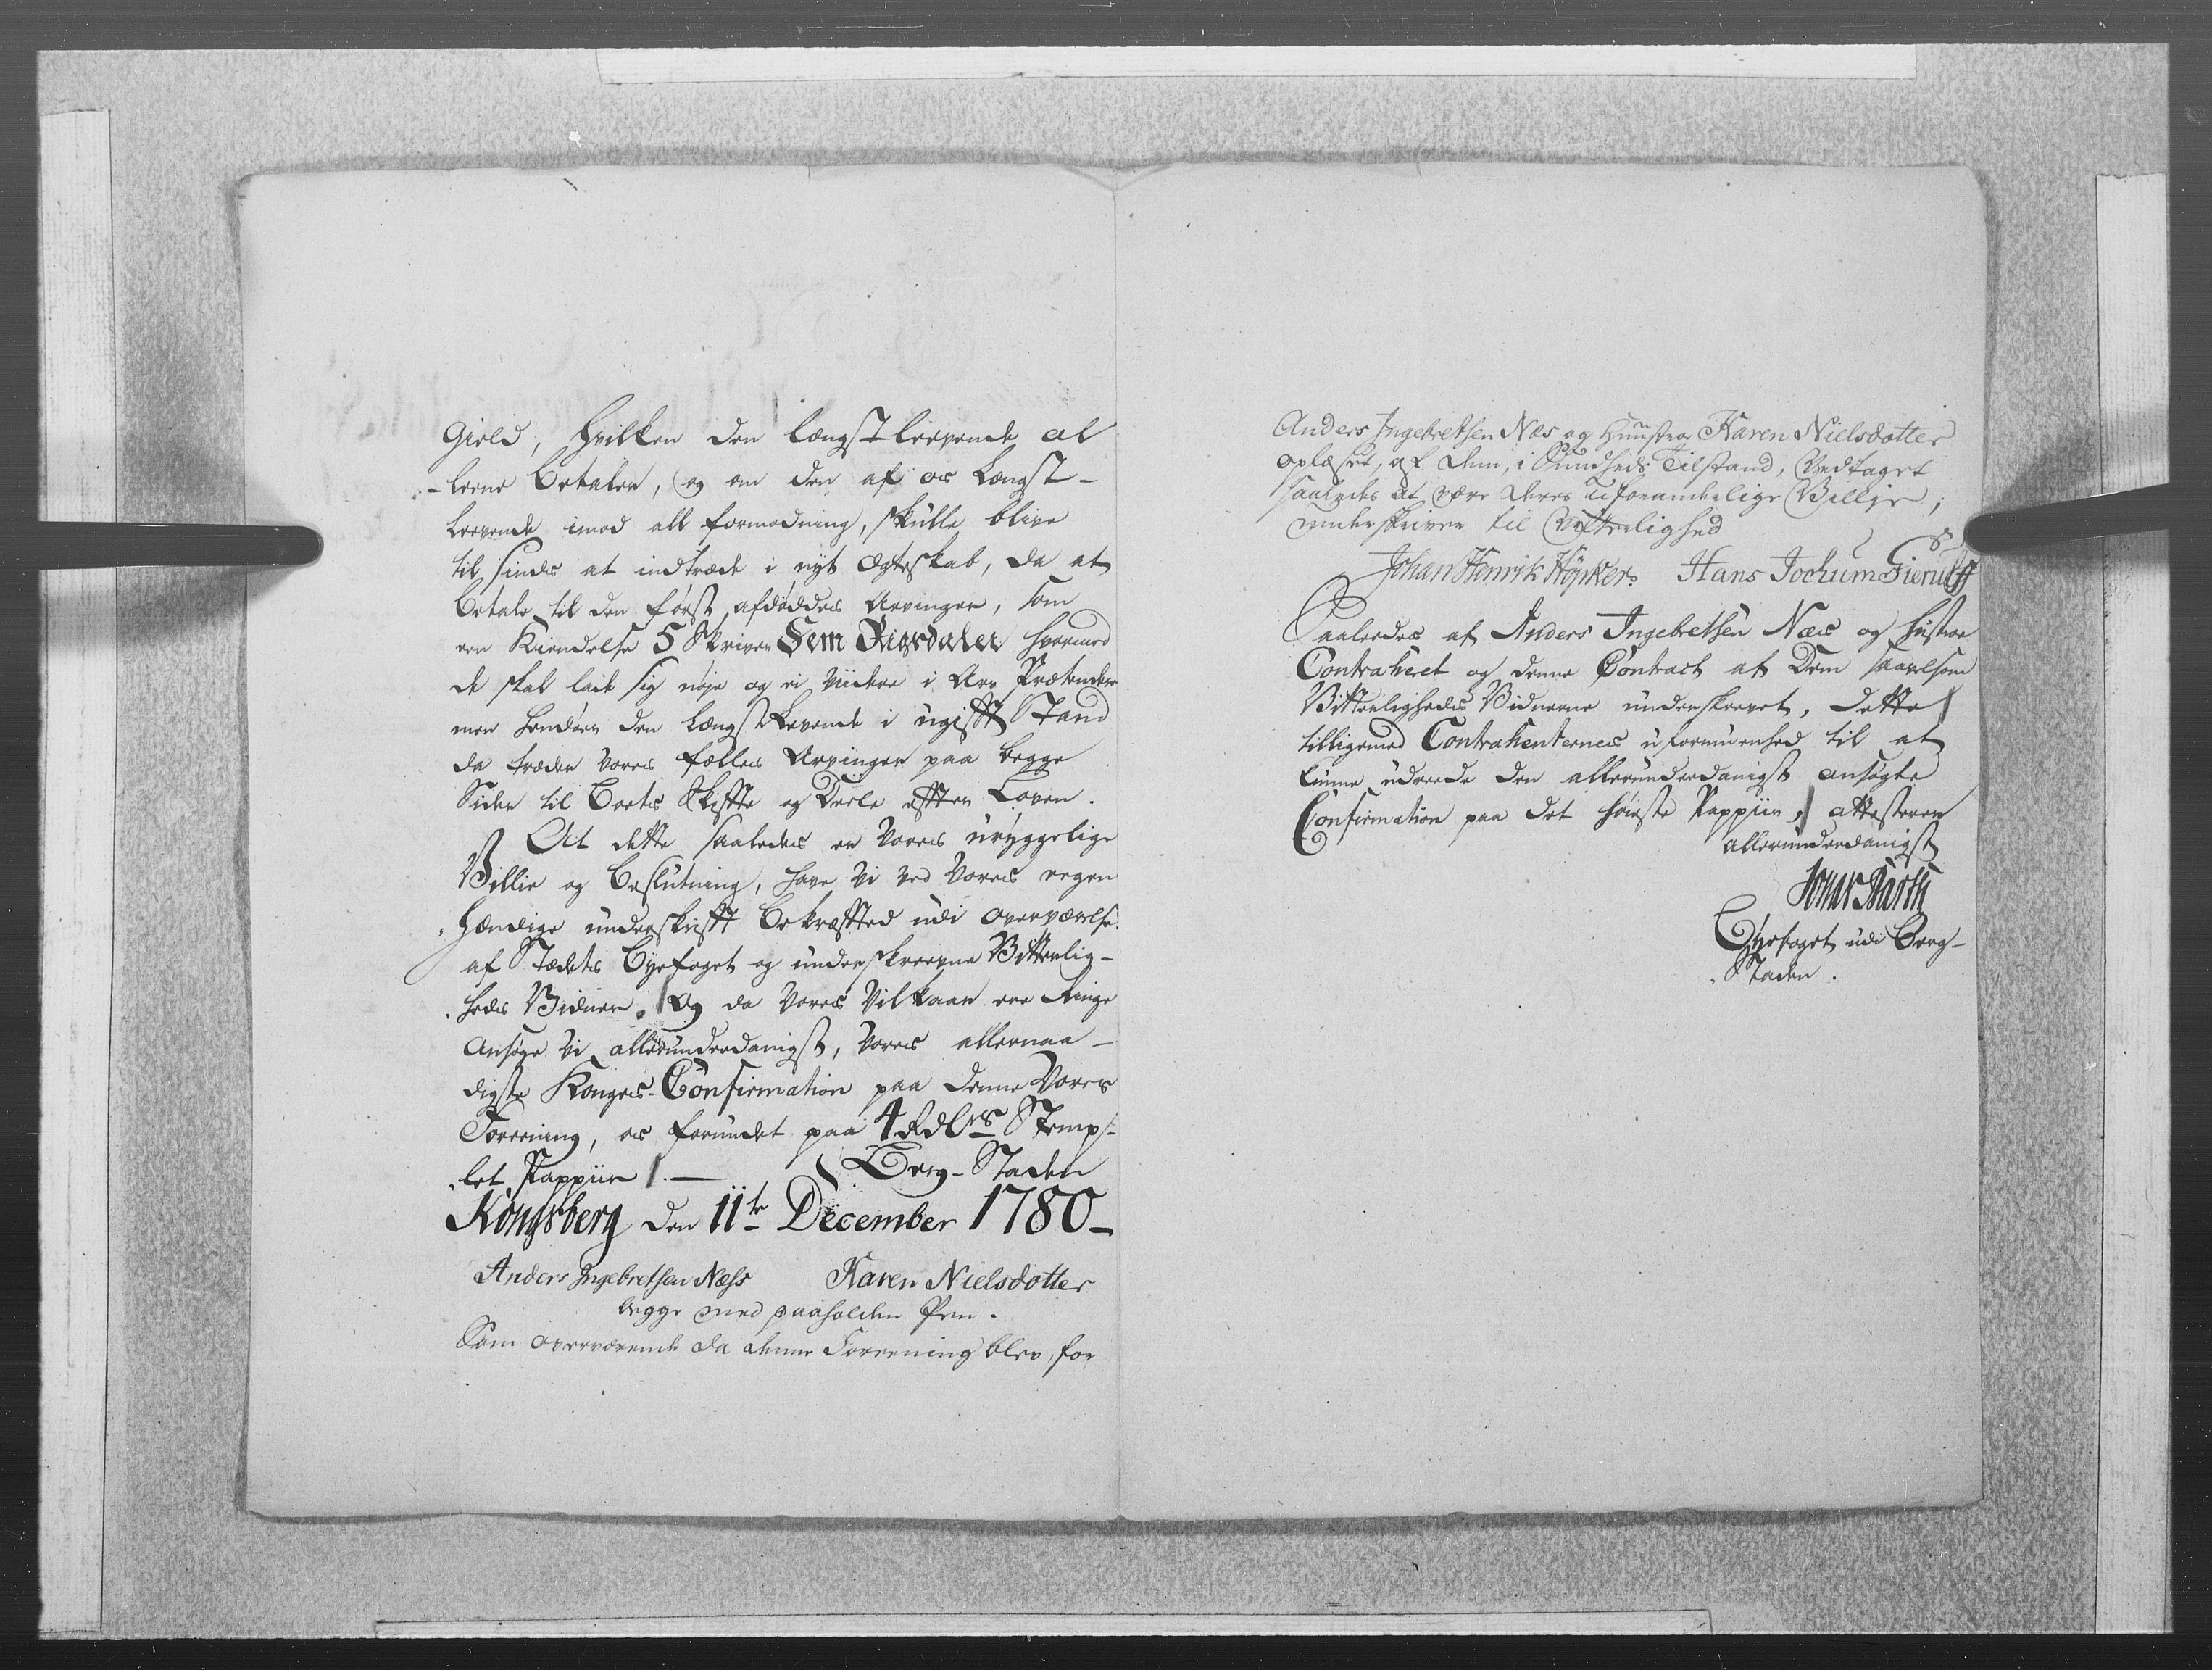 Gield, hvilken den længstlevende al
-leene betaler, og om den af os længst-
levende imod all formodning, skulle blive
til sinds at indtræde i nyt Ægteskab, da at
betale til den først afdøddes Arvinger, som
en Kiendelse 5 skriver Fem Rigsdaler hvormed
de skal lade sig nøje og ei viidere i Arv Prætendere
men hendøer den længstlevende i ugifft Stand
da træder vores fælles Arvinger paa begge
Sider til Boets Skiffte og Deele effter Loven.
At dette saaledes er vores uryggelige
Villie og beslutning, have vi ved vores egen
hændige underskrifft bekræffted udi overværelse
af Stædets Byefoget og underskreevne Vitterlig-
heds Vidner. Og da vores Vilkaar ere Ringe
Ansøge vi allerunderdanigst, vores allernaa-
digste Konges Confirmation paa denne Vores
Foreening, os forundet paa 4 Rdlrs Stemp-
let Pappiir /. — Berg-Staden
Kongsberg den 11te December 1780-
Anders Ingebrethsen Næss Karen Nielsdotter
begge med paaholden Pen.
Som overværende da denne Foreening blev, for
Anders Ingebrethsen Næs og Hustroe Karen Nielsdotter
oplæset, af dem, i Sundheds Tilstand, Vedtaget
saaledes at være deres uforanderlige Villje;
underskriver til Vitterlighed
Johan Henrik Höpker. Hans Jochum Gierulff
Saaledes af Anders Ingebrethsen Næs og Hustroe
Contraheret og denne Contract af Dem saavelsom
Vitterligheds Vidnerne underskrevet, dette
tilligemed Contrahenternes uformuenhed til at
kunne udreede den allerunderdanigst ansøgte
Confirmation paa det høieste Pappiir, attesterer
allerunderdanigst
Barth
Byefoget udi Berg-
Staden.